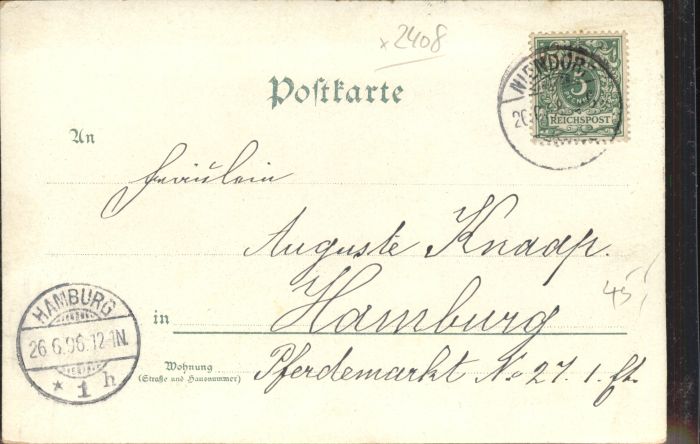 x2408
Postkarte
NIENDORF
5
REICHSPOST
An
Fräulein
Auguste Knaap.
45
in Hamburg
HAMBURG
26.6.96.12-1N.
* 1 h
Wohnung
(Straße und Hausnummer)
Pferdemarkt No 27. 1. Et.